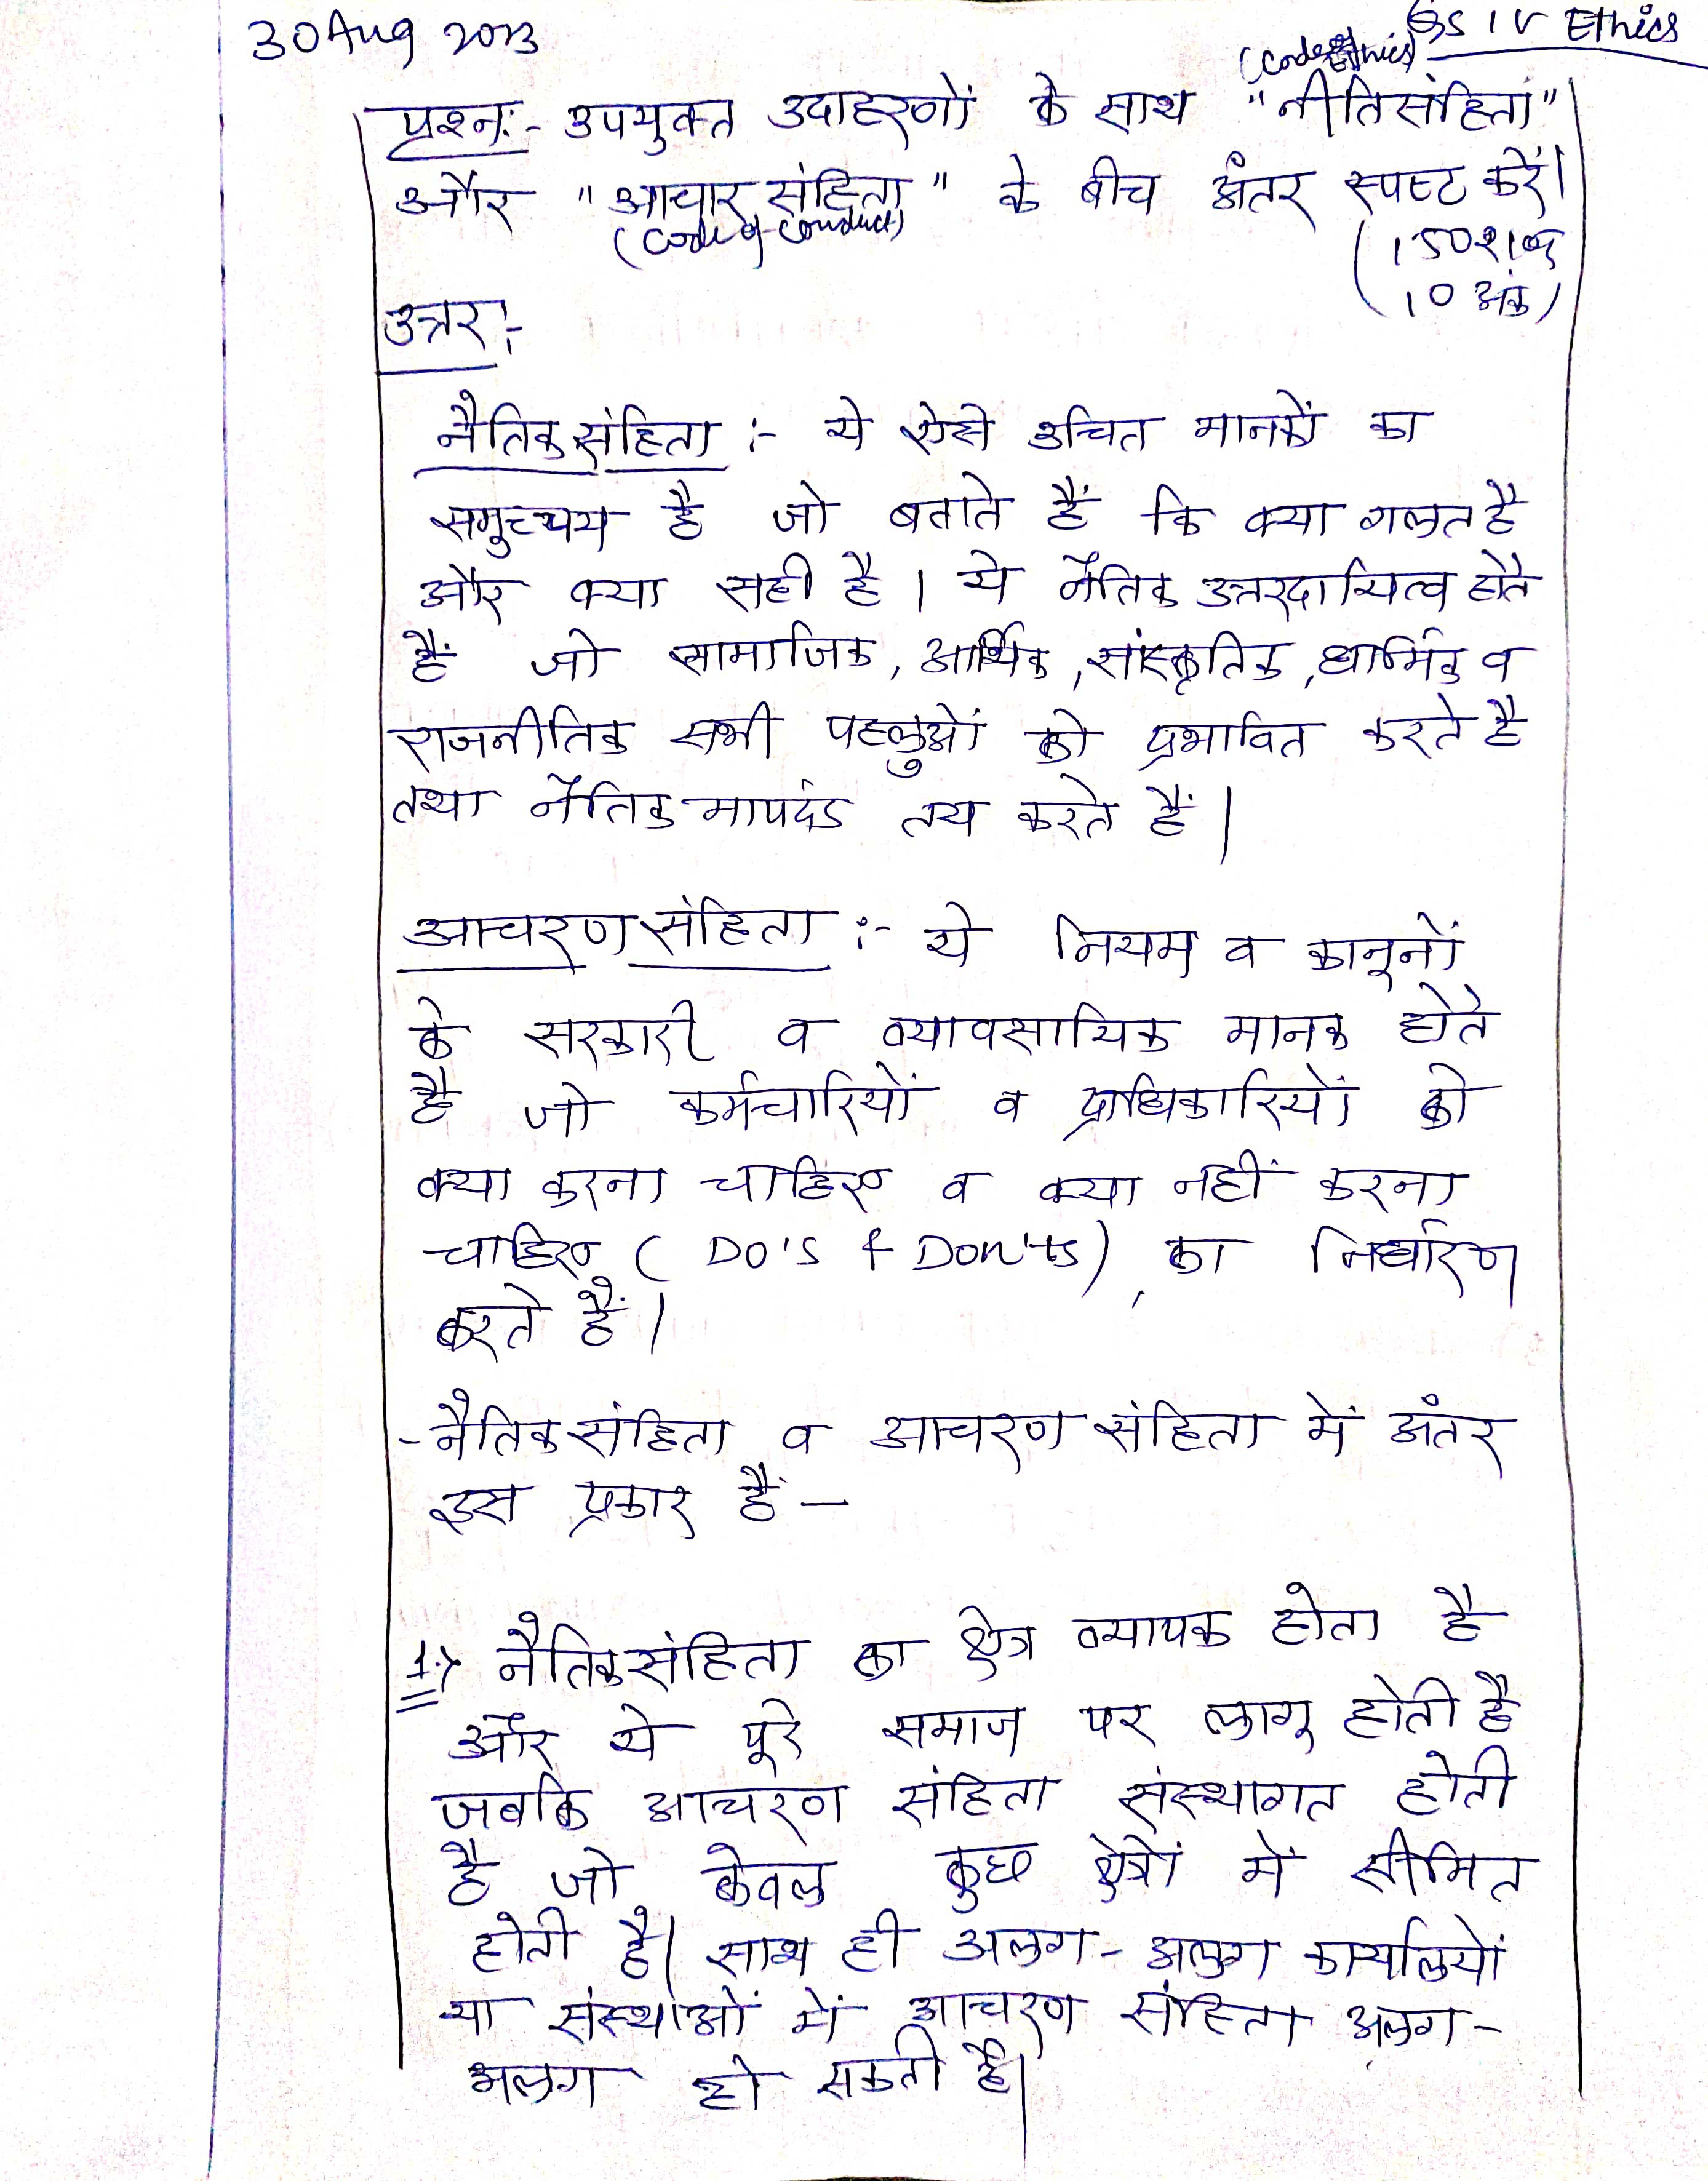 30 Aug 2023
GS IV Ethics
(Code of Ethics)
प्रश्न:- उपयुक्त उदाहरणों के साथ "नीतिसंहिता"
और "आचार संहिता" के बीच अंतर स्पष्ट करें।
(Code of Conduct)
(150 शब्द
10 अंक)
उत्तर:-
नैतिक संहिता :- ये ऐसे उचित मानकों का
समुच्चय है जो बताते हैं कि क्या गलत है
और क्या सही है। ये नैतिक उत्तरदायित्व होते
हैं जो सामाजिक, आर्थिक, सांस्कृतिक, धार्मिक व
राजनीतिक सभी पहलुओं को प्रभावित करते है
तथा नैतिक मापदंड तय करते हैं।
आचरण संहिता :- ये नियम व कानूनों
के सरकारी व व्यावसायिक मानक होते
है जो कर्मचारियों व प्राधिकारियों को
क्या करना चाहिए व क्या नहीं करना
चाहिए (DO'S & DON'ts), का निर्धारण
करते हैं।
- नैतिक संहिता व आचरण संहिता में अंतर
इस प्रकार हैं -
1.> नैतिक संहिता का क्षेत्र व्यापक होता है
और ये पूरे समाज पर लागू होती है
जबकि आचरण संहिता संस्थागत होती
है जो केवल कुछ क्षेत्रों में सीमित
होती है। साथ ही अलग-अलग कार्यालियों
या संस्थाओं में आचरण संहिता अलग-
अलग हो सकती है।